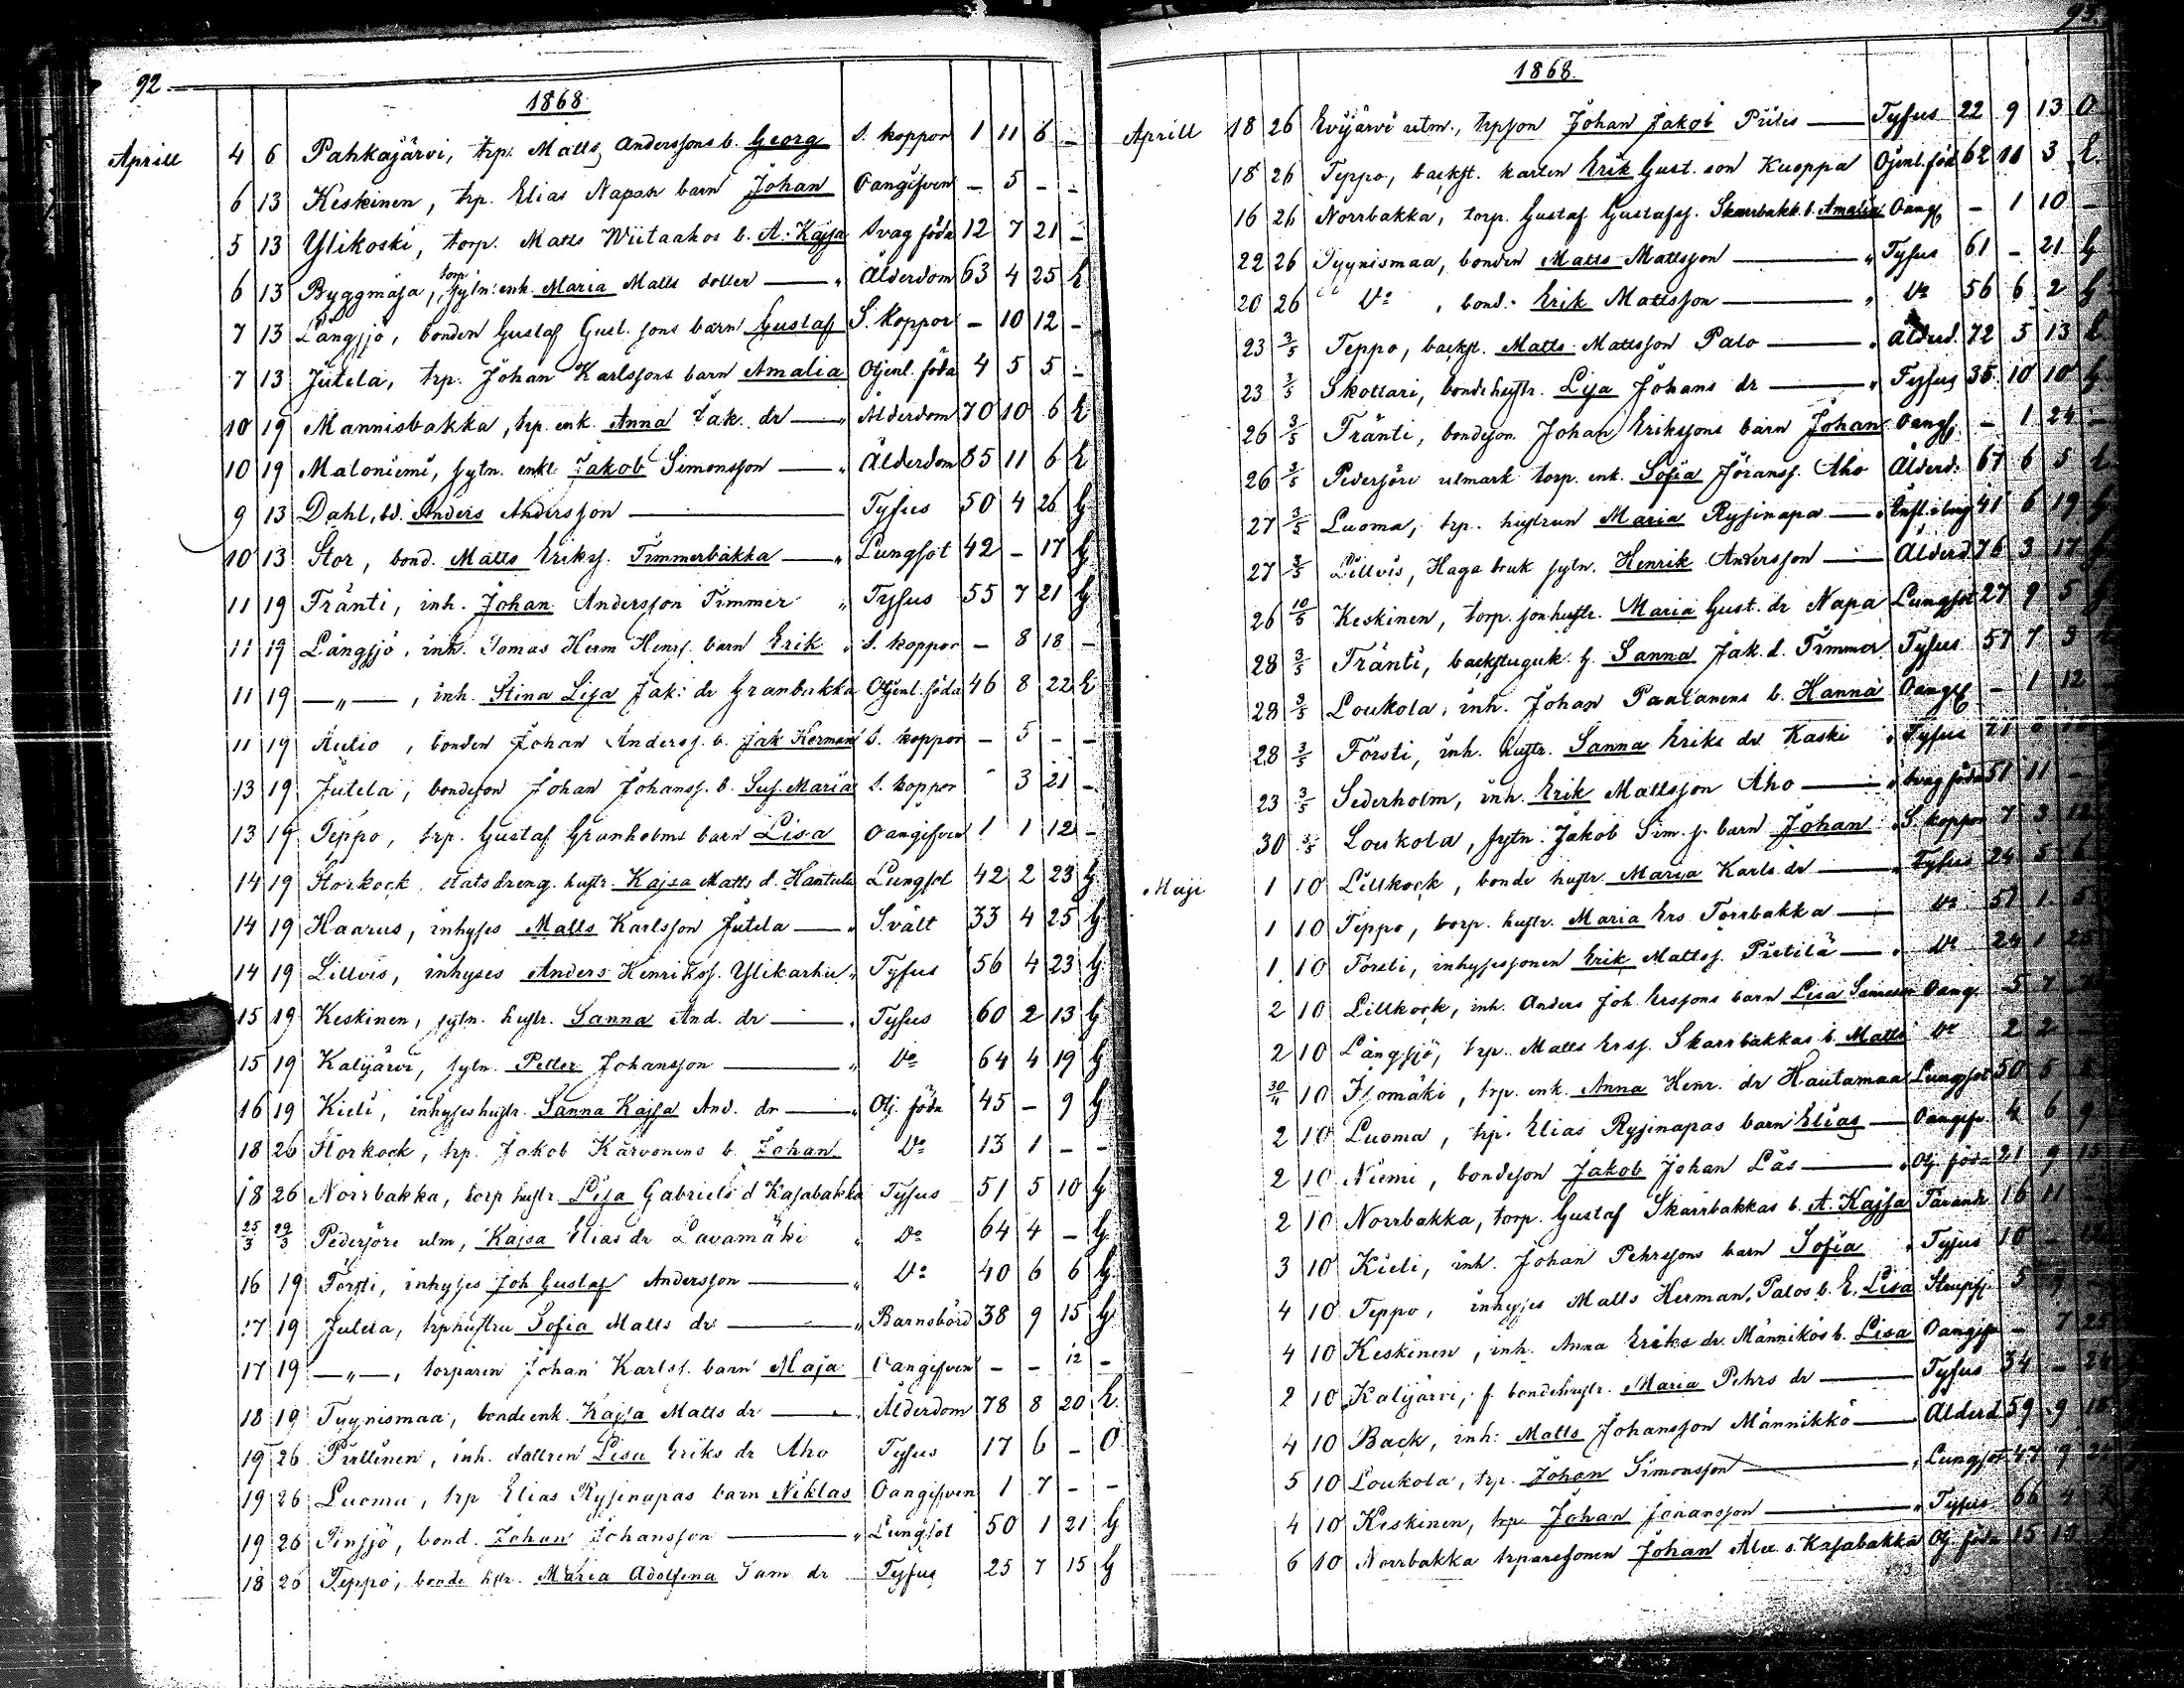 92
1868.
Aprill 4 6 Pahkajärvi, trp. Matts Anderssons b. Georg S. koppor 1 11 6 -
6 13 Keskinen, trp. Elias Napas barn Johan Oangifven - 5 - -
5 13 Ylikoski, torp. Matts Wiitaahos b. A. Kajsa Svag föda 12 7 21 -
6 13 Byggmäsa, torp. sytn. enk. Maria Matts dotter " Ålderdom 63 4 25 E
7 13 Långsjö, bonden Gustaf Gust. sons barn Gustaf S. koppor - 10 12 -
7 13 Jutela, trp. Johan Karlssons barn Amalia Otjenl. föda 4 5 5 -
10 19 Mannisbakka, trp. enk. Anna Jak. dr " Ålderdom 70 10 6 E
10 19 Maloniemi, sytn. enkl. Jakob Simonsson " Ålderdom 85 11 6 E
9 13 Dahl, bd. Anders Andersson Tyfus 50 4 26 G
10 13 Stor, bond. Matts Erikss. Timmerbakka " Lungsot 42 - 17 G
11 19 Tränti, inh. Johan Andersson Timmer " Tyfus 55 7 21 G
11 19 Långsjö, inh. Tomas Herm Henrs. barn Erik " S. koppor - 8 18 -
11 19 —"—, inh. Stina Lisa Jak: dr Granbakka Otjenl. föda 46 8 22 E
11 19 Aulio, bonden Johan Anderss. b. Jak Herman S. koppor - 5 - -
13 19 Jutela, bondeson Johan Johanss. b. Sus. Maria S. koppor - 3 21 -
13 19 Teppo, trp. Gustaf Granholms barn Lisa Oangifven 1 1 12 -
14 19 Storkock, statsdreng. hustr. Kajsa Matts d. Hantula Lungsot 42 2 23 G
14 19 Haarus, inhyses Matts Karlsson Jutela " Svält 33 4 25 G
14 19 Lillvis, inhyses Anders Henrikss. Ylikarhu " Tyfus 56 4 23 G
15 19 Keskinen, sytn. hustr. Sanna And. dr " Tyfus 60 2 13 G
15 19 Kalijärvi, sytn. Petter Johansson " Do 64 4 19 G
16 19 Kieli, inhyseshustr. Sanna Kajsa And. dr " Otj. föda 45 - 9 G
18 26 Storkock, trp. Jakob Karvonens b. Johan Do 13 1 - -
18 26 Norrbakka, torp hustr. Lisa Gabriels d Kajabakka Tyfus 51 5 10 G
25/3 29/3 Pedersöre utm, Kajsa Elias dr Lavamäki " Do 64 4 - G
16 19 Försti, inhyses Joh Gustaf Andersson " Do 40 6 6 G
17 19 Jutela, trphustru Sofia Matts dr " Barnsbörd 38 9 15 G
17 19 —"—, torparen Johan Karlss. barn Maja Oangifven - - 12 -
18 19 Tyynismaa, bondeenk. Kajsa Matts dr Ålderdom 78 8 20 E.
19 26 Purtinen, inh. dottren Lisa Eriks dr Aho Tyfus 17 6 - O
19 26 Luoma, trp Elias Rysinapas barn Niklas Oangifven 1 7 - -
19 26 Finsjö, bond. Johan Johansson " Lungsot 50 1 21 G
18 26 Teppo, bonde hstr. Maria Adolfina Sam dr Tyfus 25 7 15 G
93.
1868.
Aprill 18 26 Evijärvi utm., trpson Johan Jakob Tyfus 22 9 13 O
18 26 Teppo, backst. karlen Erik Gust. son Kuoppa Otjenl. föd 62 11 3 E.
16 26 Norrbakka, torp. Gustaf Gustafss. Skarrbakk. b. Amalia Oangf - 1 10 -
22 26 Tyynismaa, bonden Matts Mattsson " Tyfus 61 - 21 G
20 26 Do, bond. Erik Mattsson " Do 56 6 2 G
23 3/5 Teppo, backst. Matts Mattsson Palo " Ålderd. 72 5 13 E.
23 3/5 Skottari, bondehustr. Lisa Johans dr " Tyfus 35 10 10 G
26 3/5 Tränti, bondeson Johan Erikssons barn Johan Oangf. - 1 24 -
26 3/5 Pedersöre utmark torp. enk. Sofia Jöranss. Aho Ålderd. 67 6 5 E
27 3/5 Luoma, trp. hustrun Maria Rysinapa " Infl. i lung 41 6 19 G
27 3/5 Lillvis, Haga bruk sytn. Henrik Andersson Ålderd 76 3 17
26 10/5 Keskinen, torp. sonhustr. Maria Gust. dr Napa Lungsot 27 9 5 G
28 3/5 Tränti, backstuguk. h. Sanna Jak. d. Timmer Tyfus 57 7 3
28 3/5 Loukola, inh. Johan Paalanens b. Hanna Oangf - 1 12
28 3/5 Försti, inh. hustr. Sanna Eriks dr Kaski " Tyfus
23 3/5 Sederholm, inh. Erik Mattsson Aho " Svag föda 51 11 -
30 3/5 Loukola, sytn. Jakob Sim. s. barn Johan " S. koppor 7 3 12
Maji 1 10 Lillkock, bonde hustr Maria Karls dr " Tyfus 24 5 6
1 10 Teppo, torp. hustr. Maria Ers. Torrbakka Do 51 1 5
1 10 Försti, inhysessonen Erik Mattss. Pietilä " Do 24 1 25
2 10 Lillkock, inh. Anders Joh. Erssons barn Lisa Oang. 5 7
2 10 Långsjö, trp. Matts Erss. Skarrbakkas b. Matts Do 2 2
30/4 10 Isomäki, trp. enk. Anna Henr. dr Hautamaa Lungsot 50 5
2 10 Luoma, trp. Elias Rysinapas barn Elias Oangif. 4 6 9
2 10 Niemi, bondeson Jakob Johan Läs " Otj. föda 21 9 15
2 10 Norrbakka, torp. Gustaf Skarrbakkas b. A. Kajsa 16 11
3 10 Kieli, inh. Johan Pehrssons barn Sofia " Tyfus 10 -
4 10 Teppo, inhyses Matts Herman. Palos b. E. Lisa Strupsj. 5 9
4 10 Keskinen, inh. Anna Eriks dr. Männikös b. Lisa Oangif - 7 25
2 10 Kalijärvi, f. bondehustr. Maria Pehrs dr Tyfus 34 - 24
4 10 Back, inh: Matts Johansson Männikkö Ålderd 59 9
5 10 Loukola, trp. Johan Simonsson " Lungsot 47 9
4 10 Keskinen, trp Johan Johansson " Tyfus 66 4
6 10 Norrbakka trparesonen Johan Alex s. Kajabakka Otj. föda 15 10